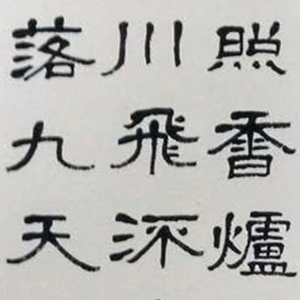 照香爐
川飛㳅
落九天